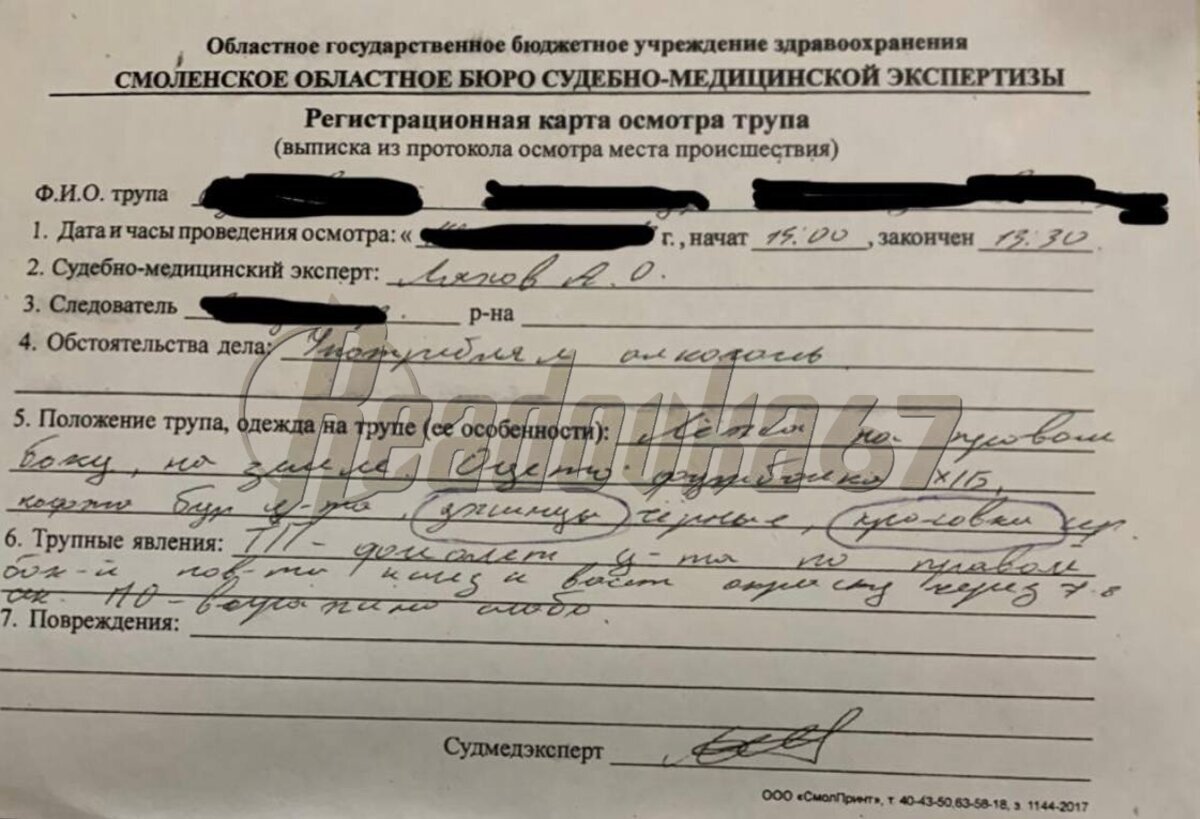 Областное государственное бюджетное учреждение здравоохранения
СМОЛЕНСКОЕ ОБЛАСТНОЕ БЮРО СУДЕБНО-МЕДИЦИНСКОЙ ЭКСПЕРТИЗЫ
Регистрационная карта осмотра трупа
(выписка из протокола осмотра места происшествия)
Ф.И.О. трупа
1. Дата и часы проведения осмотра: « г., начат 15:00, закончен 15:30
2. Судебно-медицинский эксперт: А. О.
3. Следователь р-на
4. Обстоятельства дела: Употреблял алкоголь
Readovka67
5. Положение трупа, одежда на трупе (ее особенности): Лежа на правом
боку, на земле. Одето: футболка х/б,
кофта ц-та, джинцы чёрные,
6. Трупные явления: ТП - фиолет ц-та по правой
бок-й пов-ти и восст окраску через 7
сек. выражено слабо.
7. Повреждения:
Судмедэксперт
ООО «СмолПринт», т. 40-43-50,63-58-18, з. 1144-2017